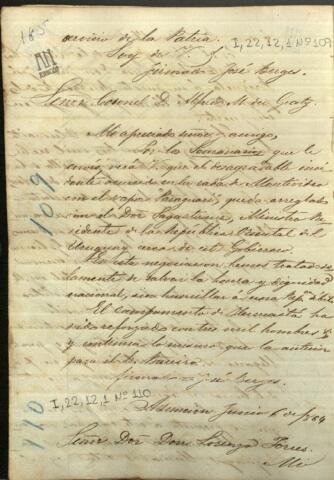 185
servicio de la Patria.
Soy de V. S.
I, 22, 12, 1 Nº 109
firmado José Berges.
Señor Coronel D. Alfredo M. du Graty.
Mi apreciado Señor y amigo,
En los Semanarios que le
envio, verá V. que el desagradable inci
dente ocurrido en la rada de Montevideo
con el vapor Paraguarí, queda arreglado
con el Dor Sagastume, Ministro Re
sidente de la República Oriental del
Uruguay cerca de este Gobierno.
En esta negociacion hemos tratado so
lamente de salvar la honra y dignidad
nacional, sin humillar a una Repª debil.
El campamento de Humaitá ha
sido reforzado con tres mil hombres
y continúa lo mismo que la anterior
para el
firmado José Berges.
109
I, 22, 12, 1 Nº 110
Asuncion Junio 6 de 1864
110
Señor Dor Don Lorenzo Torres.
Mi